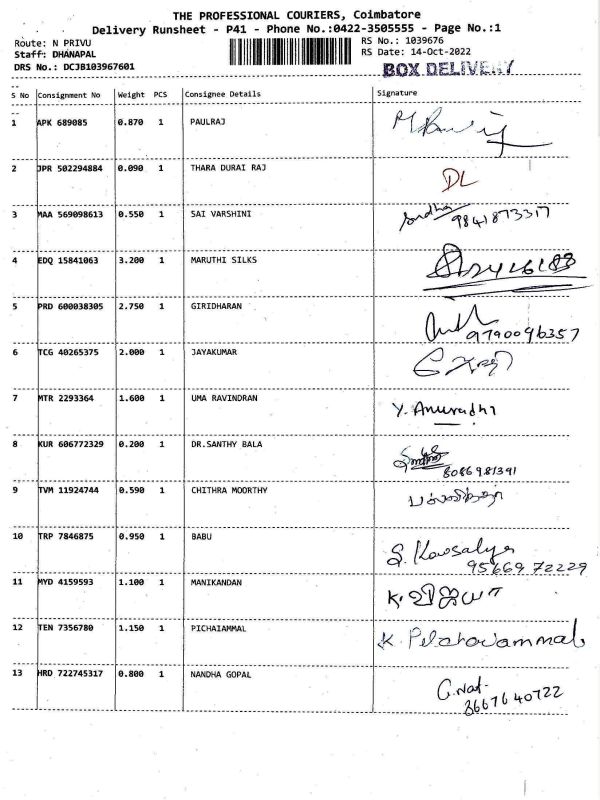 THE PROFESSIONAL COURIERS, Coimbatore
Delivery Runsheet - P41 - Phone No.:0422-3505555 - Page No.:1
Route: N PRIVU
Staff: DHANAPAL
DRS No.: DCJB103967601
RS No.: 1039676
RS Date: 14-Oct-2022
BOX DELIVERY
S No Consignment No Weight PCS Consignee Details Signature
1 APK 689085 0.870 1 PAULRAJ
2 JPR 502294884 0.090 1 THARA DURAI RAJ DL
3 MAA 569098613 0.550 1 SAI VARSHINI
9841873317
4 EDQ 15841063 3.200 1 MARUTHI SILKS
5 PRD 600038305 2.750 1 GIRIDHARAN
9790096357
6 TCG 40265375 2.000 1 JAYAKUMAR
7 MTR 2293364 1.600 1 UMA RAVINDRAN Y. Anuradha
8 KUR 606772329 0.200 1 DR.SANTHY BALA
8086981391
9 TVM 11924744 0.590 1 CHITHRA MOORTHY
10 TRP 7846875 0.950 1 BABU S. Kowsalya
95669 72229
11 MYD 4159593 1.100 1 MANIKANDAN K. விஜயா
12 TEN 7356780 1.150 1 PICHAIAMMAL
13 HRD 722745317 0.800 1 NANDHA GOPAL